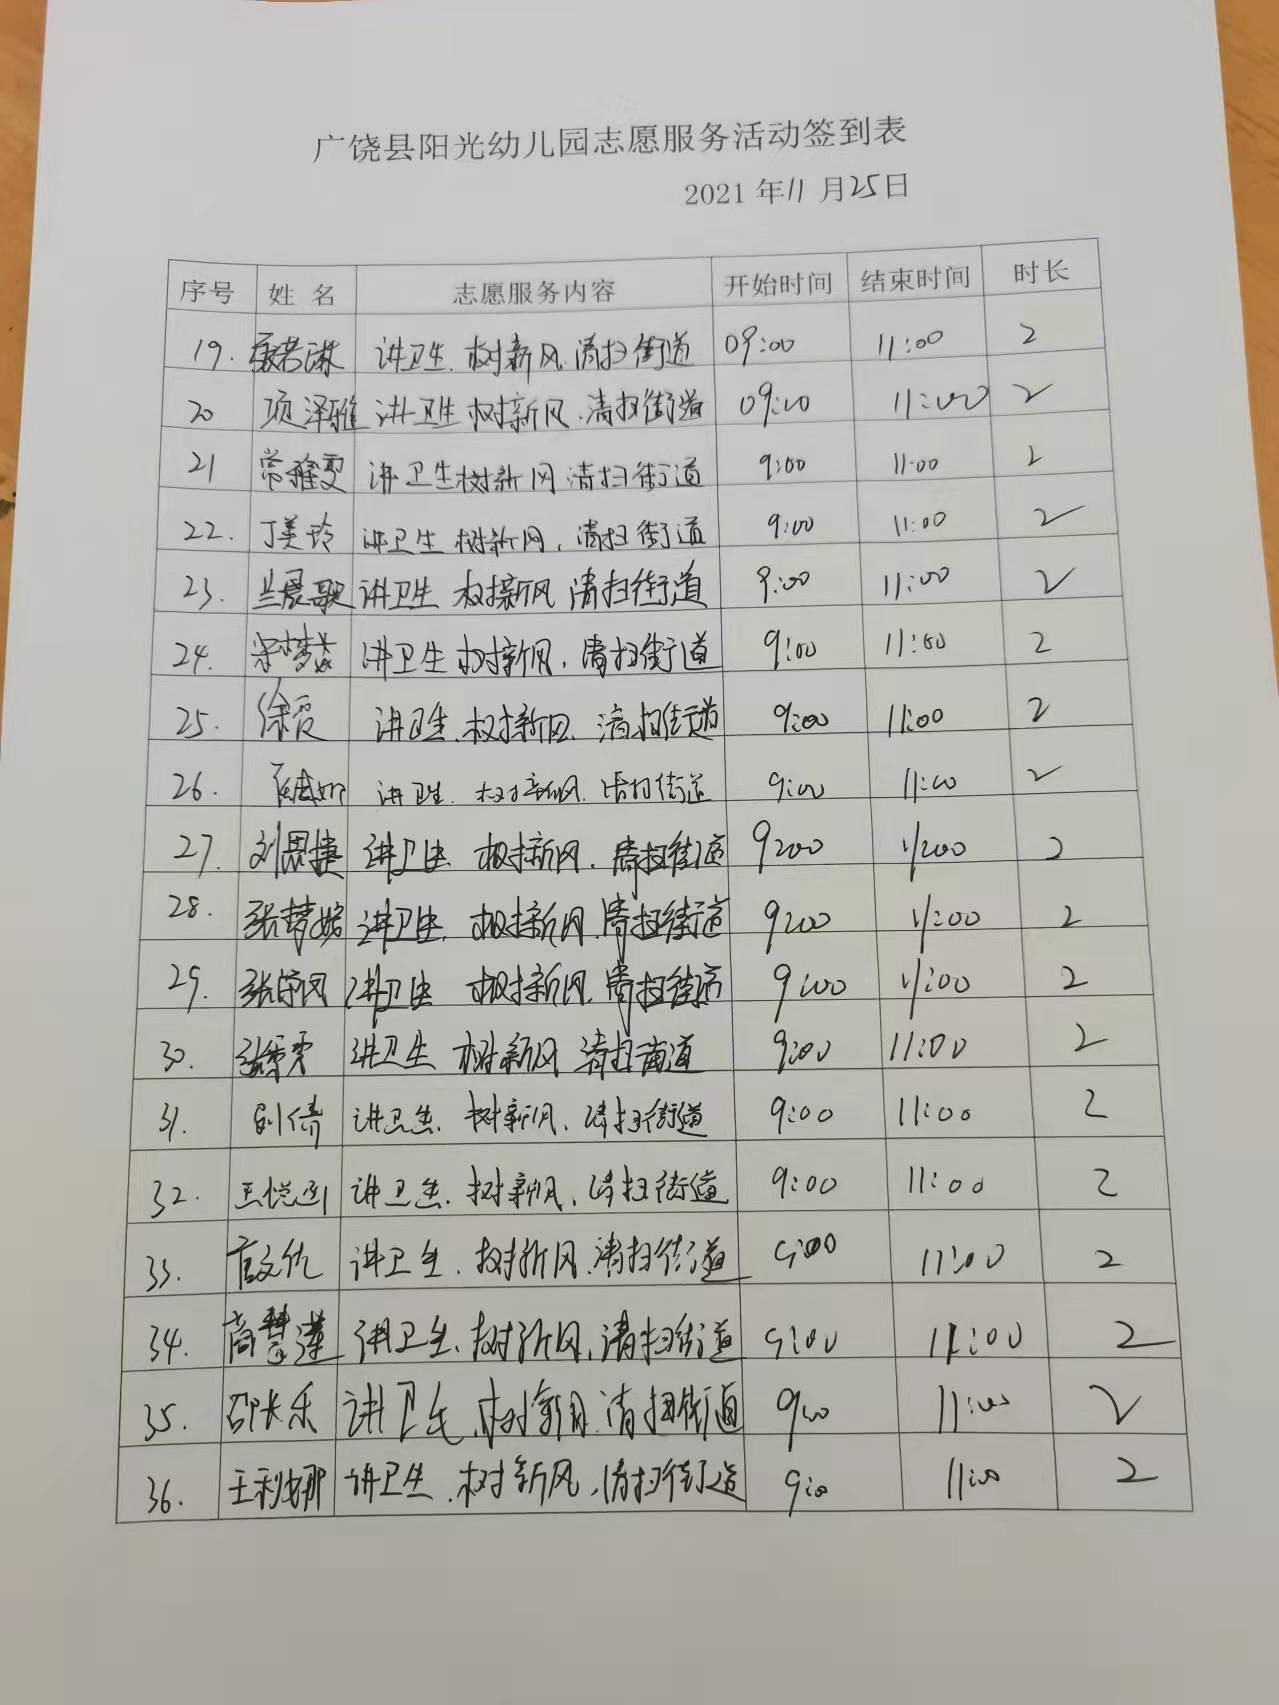 广饶县阳光幼儿园志愿服务活动签到表
2021年11月25日
序号 姓名 志愿服务内容 开始时间 结束时间 时长
19. 讲卫生.树新风.清扫街道 09:00 11:00 2
20 项泽雅 讲卫生树新风.清扫街道 09:00 11:00 2
21 常雅雯 讲卫生树新风清扫街道 9:00 11:00 2
22. 丁美玲 讲卫生树新风.清扫街道 9:00 11:00 2
23. 兰晨歌 讲卫生树新风清扫街道 9:00 11:00 2
24. 讲卫生树新风.清扫街道 9:00 11:00 2
25. 徐霞 讲卫生.树新风.清扫街道 9:00 11:00 2
26. 讲卫生.树新风.清扫街道 9:00 11:00 2
27. 刘思捷 讲卫生树新风.清扫街道 9:00 11:00 2
28. 张梦婷 讲卫生.树新风.清扫街道 9:00 11:00 2
29. 讲卫生树新风.清扫街道 9:00 11:00 2
30. 讲卫生树新风清扫街道 9:00 11:00 2
31. 刘倩 讲卫生.树新风.清扫街道 9:00 11:00 2
32. 王悦函 讲卫生.树新风.清扫街道 9:00 11:00 2
33. 讲卫生.树新风.清扫街道 9:00 11:00 2
34. 高慧莲 讲卫生.树新风.清扫街道 9:00 11:00 2
35. 邵长乐 讲卫生.树新风.清扫街道 9:00 11:00 2
36. 王利娜 讲卫生.树新风.清扫街道 9:00 11:00 2